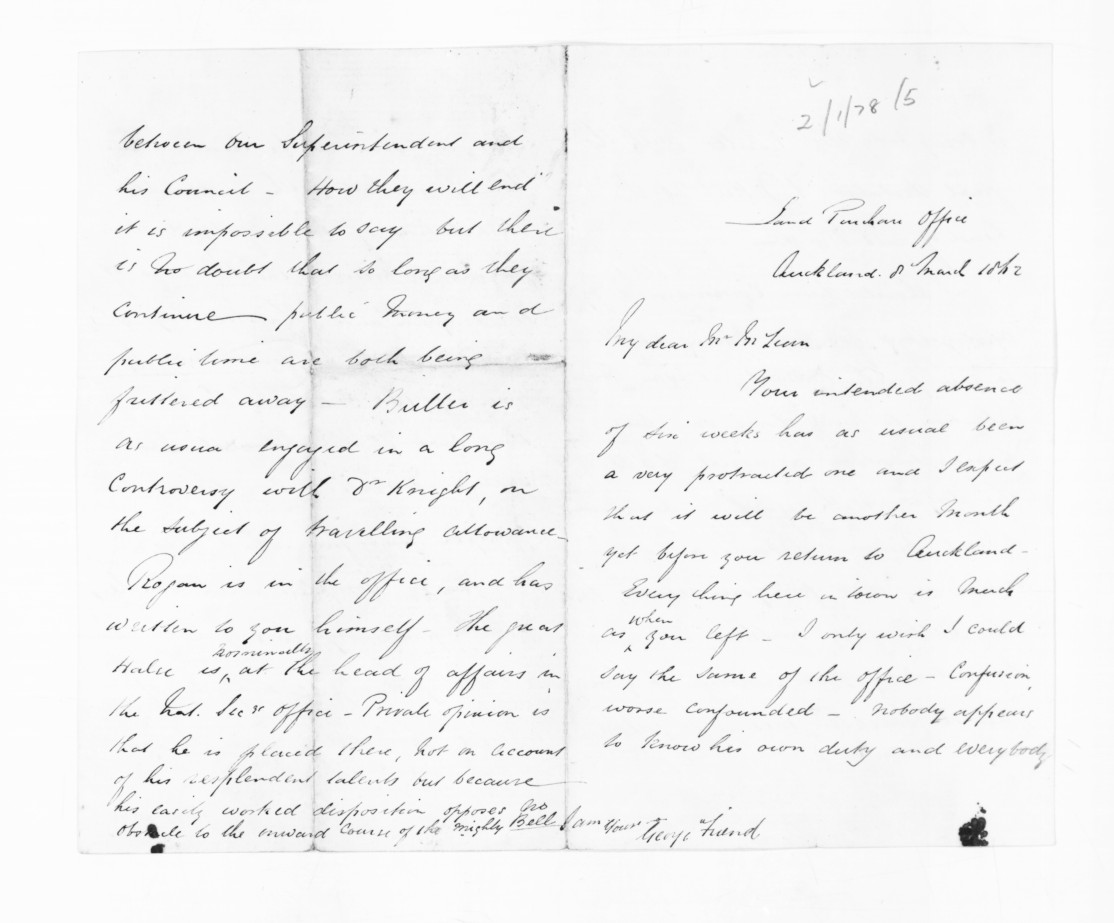 2/1/78/5
Land Purchase Office
Auckland. 8 March 1862
My dear Mr McLean
Your intended absence
of six weeks has as usual been
a very protracted one and I expect
that it will be another Month
yet before you return to Auckland –
Everything here in town is Much
as when you left – I only wish I could
say the same of the office – Confusion
worse confounded – nobody appears
to know his own duty and everybody
between our Superintendent and
his Council – How they will end
it is impossible to say but their
is no doubt that so long as they
continue public Money and
public time are both being
frittered away – Buller is
as usual engaged in a long
Controversy with Dr Knight, on
the subject of travelling allowance –
Rogan is in the office, and has
written to you himself – The great
Halse is nominally at the head of affairs in
the Nat. Secys office – Private opinion is
that he is placed there, not on account
of his resplendent talents but because
his easily worked disposition opposes no
obstacle to the onward course of the mighty Bell
I am Yours
George Friend